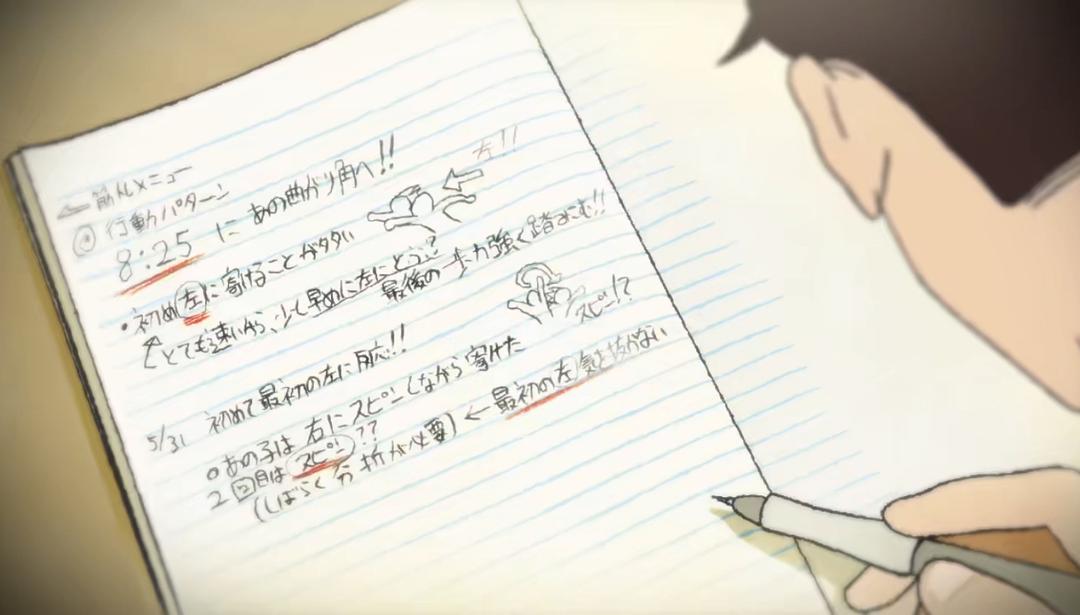 ← 筋トレメニュー
◎ 行動パターン
8:25 に あの曲がり角へ!!
左!!
・初め左に寄けることが多い
とても速いから、少し早めに左にとぶ?
最後の一歩力強く踏みこむ!!
スピン!?
5/31 初めて最初の左に反応!!
○あの子は 右にスピンしながら寄けた
2回目はスピン??
(しばらく分析が必要) ← 最初の左気を抜かない